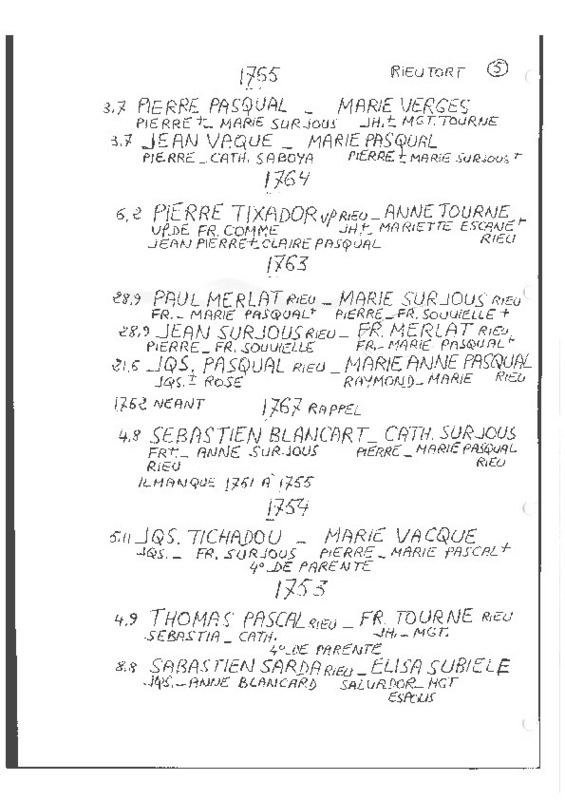 1765 RIEUTORT 5
3.7 PIERRE PASQUAL _ MARIE VERGES
PIERRE+_ MARIE SURJOUS JH.+_ MGT. TOURNE
3.7 JEAN VAQUE _ MARIE PASQUAL
PIERRE _ CATH. SABOYA PIERRE+_ MARIE SURJOUS+
1764
6,2 PIERRE TIXADOR VP RIEU _ ANNE TOURNE
VP.DE FR. COMME JH+_ MARIETTE ESCANE+
JEAN PIERRE+_ CLAIRE PASQUAL RIEU
1763
28,9 PAUL MERLAT RIEU _ MARIE SURJOUS RIEU
FR._ MARIE PASQUAL+ PIERRE_ FR. SOUVIELLE+
28,9 JEAN SURJOUS RIEU _ FR. MERLAT RIEU
PIERRE_ FR. SOUVIELLE FR._ MARIE PASQUAL+
21.6 JQS. PASQUAL RIEU _ MARIE ANNE PASQUAL
JQS.+_ ROSE RAYMOND_ MARIE RIEU
1762 NEANT 1767 RAPPEL
4.8 SEBASTIEN BLANCART_ CATH. SURJOUS
FR+_ ANNE SURJOUS PIERRE_ MARIE PASQUAL
RIEU RIEU
IL MANQUE 1761 À 1755
1754
5.11 JQS. TICHADOU _ MARIE VACQUE
JQS._ FR. SURJOUS PIERRE_ MARIE PASCAL+
4° DE PARENTE
1753
4.9 THOMAS PASCAL RIEU _ FR. TOURNE RIEU
SEBASTIA_ CATH. JH._ MGT.
4° DE PARENTE
8.8 SABASTIEN SARDA RIEU _ ELISA SUBIELE
JQS._ ANNE BLANCARD SALVADOR_ MGT